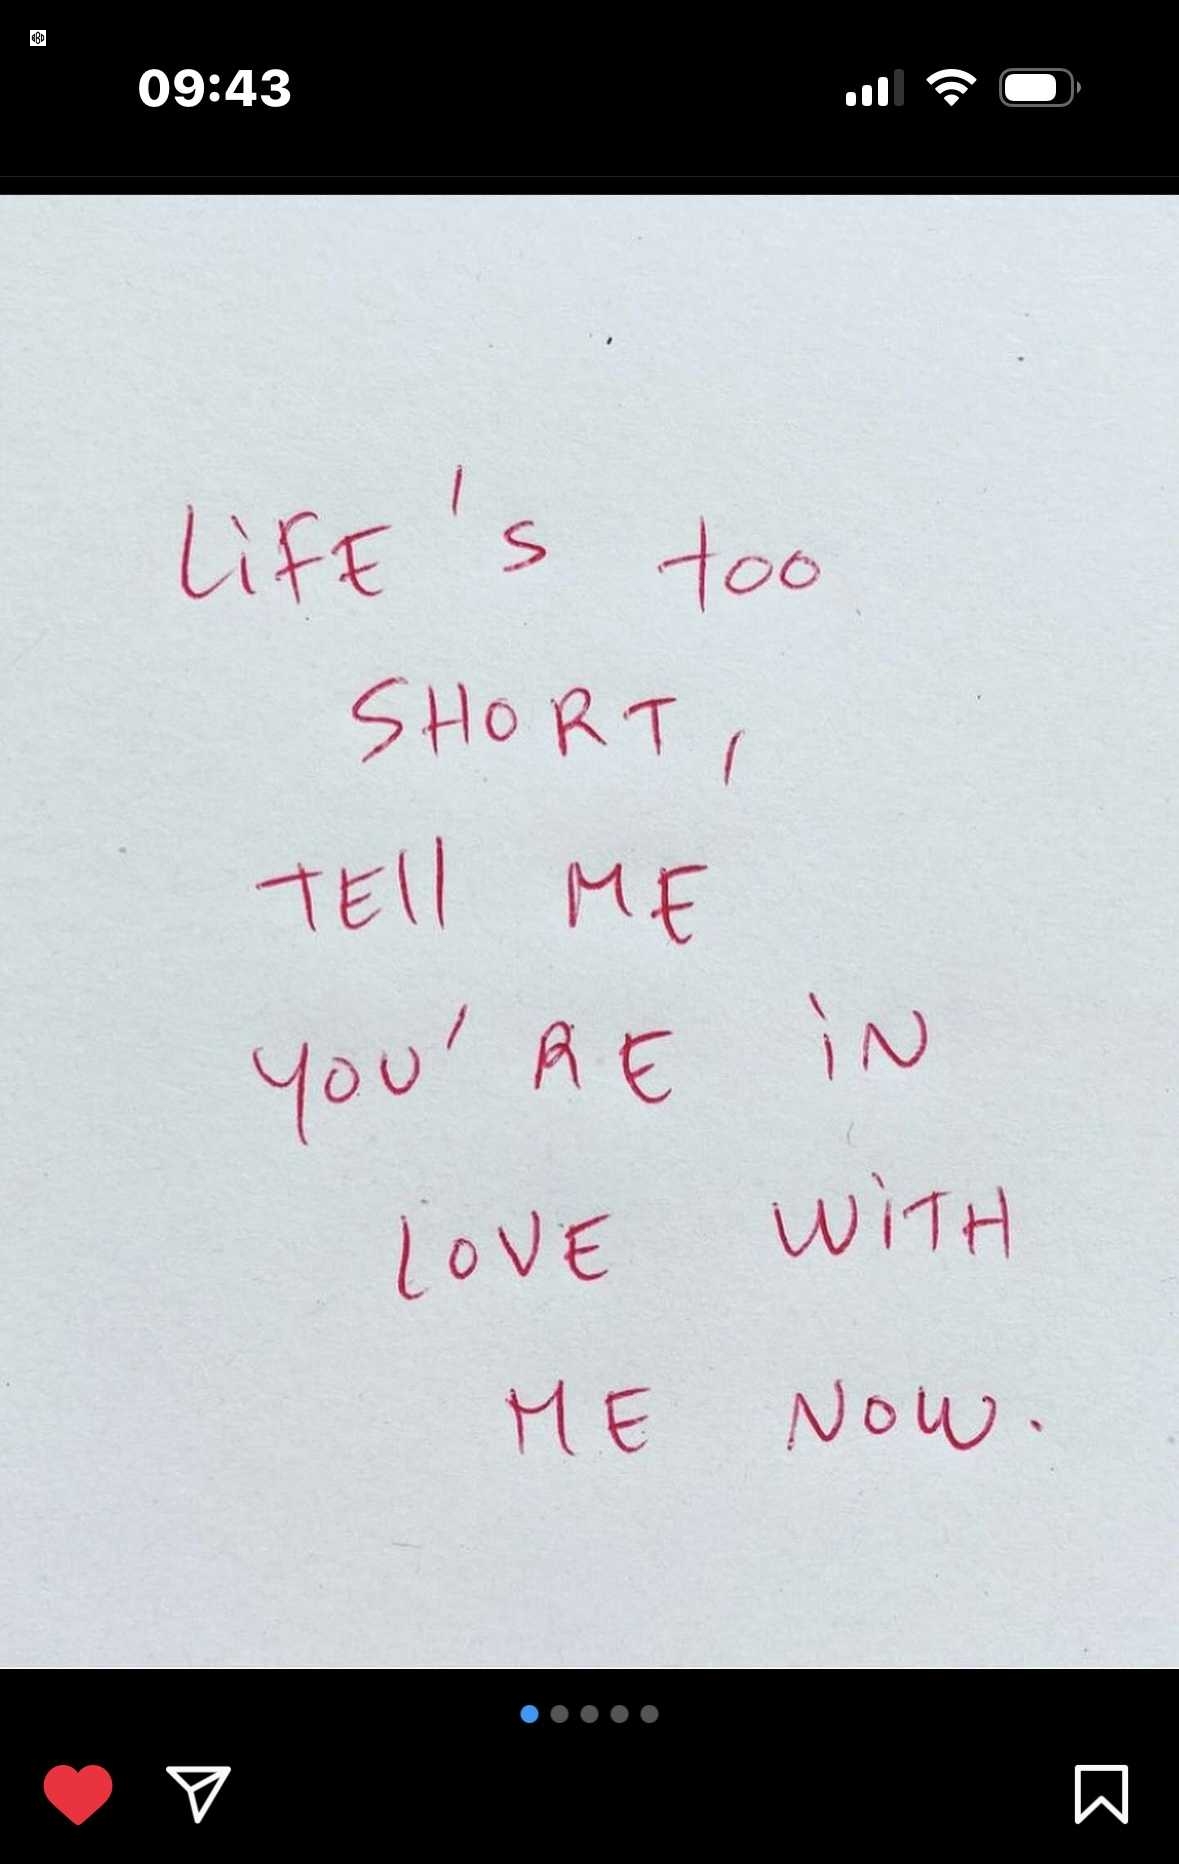 09:43
LiFE's too
SHORT,
TEll ME
YOU'RE iN
LOVE WiTH
ME NOW.